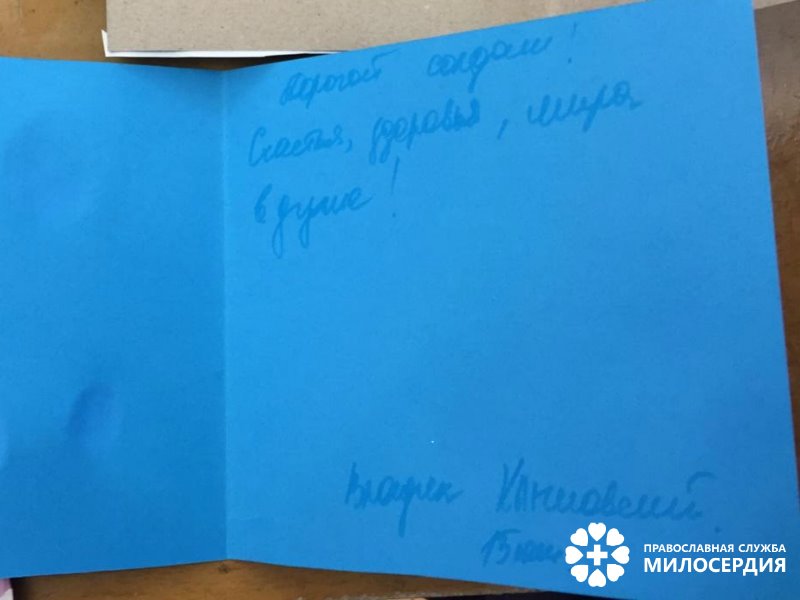 Дорогой солдат!
Счастья, здоровья, мира
в душе!
Владик
15
ПРАВОСЛАВНАЯ СЛУЖБА
МИЛОСЕРДИЯ